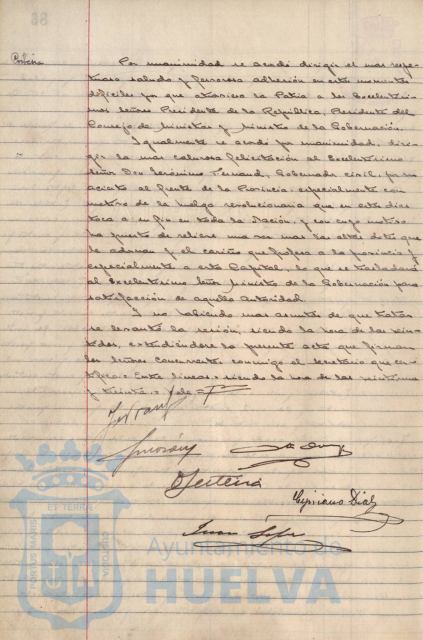 Por unanimidad se acordó dirigir el mas respe-
tuoso saludo y fervorosa adhesión en estos momentos
difíciles por que atraviesa la Patria a los Excelentísi-
mos señores Presidente de la República, Presidente del
Consejo de Ministros y Ministro de la Gobernación.
Igualmente se acordó por unanimidad, diri-
gir la mas calurosa felicitación al Excelentísimo
señor Don Jerónimo Gobernador civil, por su
al frente de la Provincia, especialmente con
motivo de la huelga revolucionaria que en estos días
toca a su fin en toda la Nación, y con cuyo motivo
ha puesto de relieve una vez mas las altas dotes que
le adornan y el cariño que profesa a la provincia y
especialmente a esta Capital, lo que se trasladará
al Excelentísimo Señor Ministro de la Gobernación para
satisfacción de aquella Autoridad.
Y no habiendo mas asuntos de que tratar
se levantó la sesión, siendo la hora de las vein-
tidos, extendiéndose la presente acta que firman
los señores Concurrentes conmigo el secretario que cer-
tifico. Entre líneas: siendo la hora de las veintiuna
y treinta. Vale.
Cipriano Díaz
Juan
ET TERRÆ
PORTUS MARIS
CUSTODIA
Ayuntamiento de
HUELVA